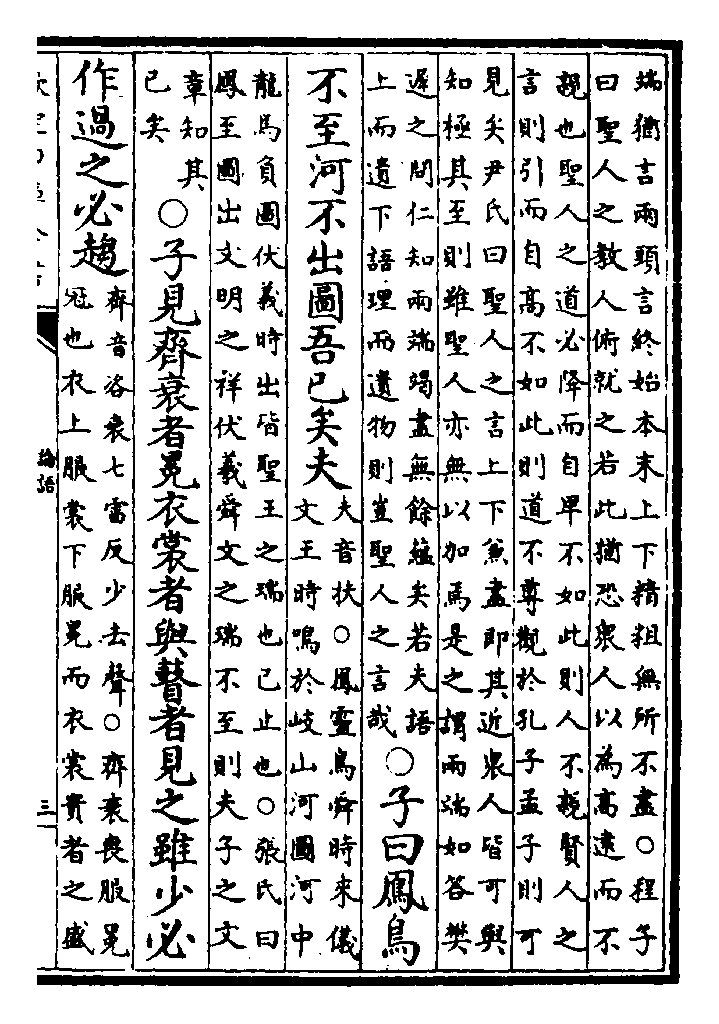 端猶言兩頭言終始本末上下精粗無所不盡○程子
曰聖人之教人俯就之若此猶恐衆人以為高遠而不
親也聖人之道必降而自卑不如此則人不親賢人之
言則引而自高不如此則道不尊觀於孔子孟子則可
見矣尹氏曰聖人之言上下兼盡即其近衆人皆可與
知極其至則雖聖人亦無以加焉是之謂兩端如答樊
遲之問仁知兩端竭盡無餘蘊矣若夫語
上而遺下語理而遺物則豈聖人之言哉
○子曰鳳鳥
不至河不出圖吾已矣夫
夫音扶○鳳靈鳥舜時來儀
文王時鳴於岐山河圖河中
龍馬負圖伏羲時出皆聖王之瑞也已止也○張氏曰
鳳至圖出文明之祥伏羲舜文之瑞不至則夫子之文
章知其
已矣
○子見齊衰者冕衣裳者與瞽者見之雖少必
作過之必趨
齊音咨衰七雷反少去聲○齊衰喪服冕
冠也衣上服裳下服冕而衣裳貴者之盛
論語
三